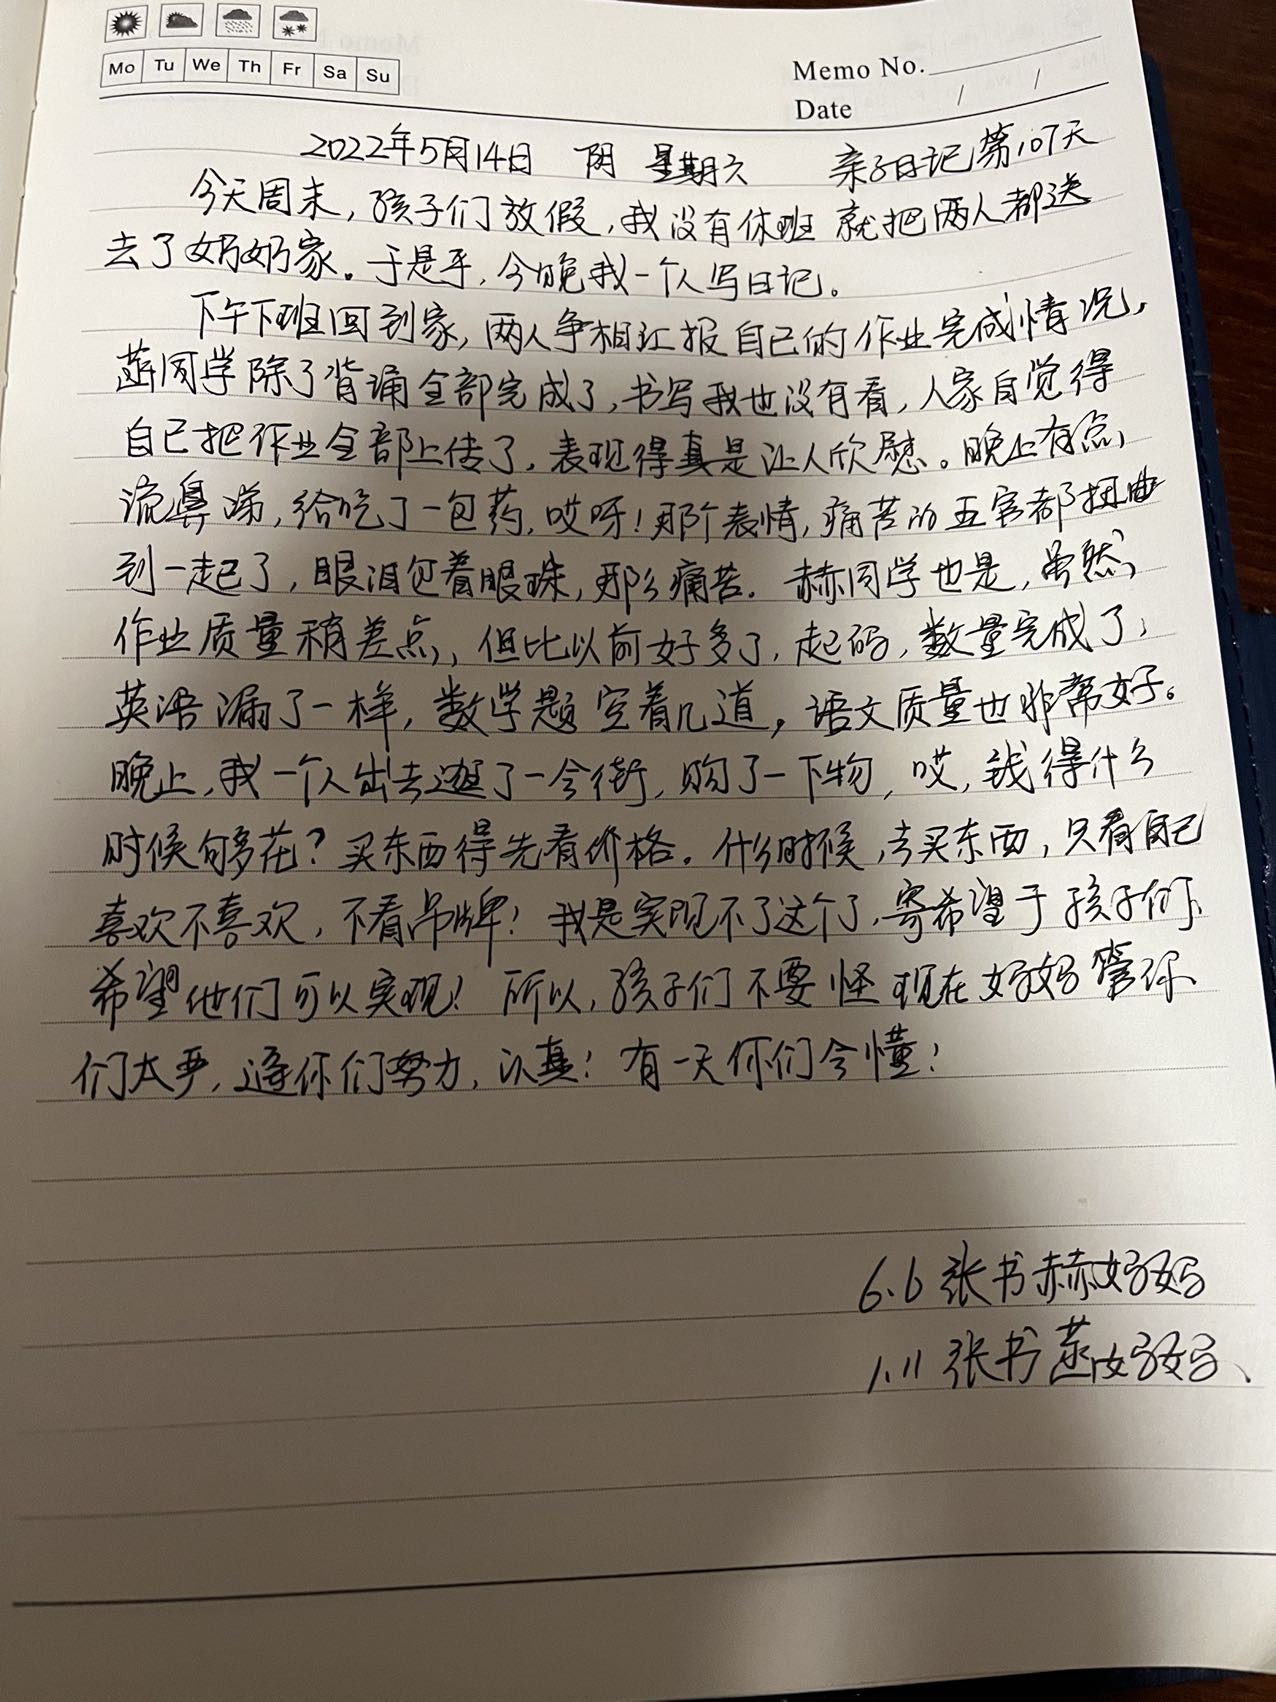 Mo Tu We Th Fr Sa Su
Memo No.
Date / /
2022年5月14日 阴 星期六 亲子日记第107天
今天周末，孩子们放假，我没有休班 就把两人都送
去了奶奶家。于是乎，今晚我一个人写日记。
下午下班回到家，两人争相汇报自己的作业完成情况，
同学除了背诵全部完成了，书写我也没有看，人家自觉得
自己把作业全部上传了，表现得真是让人欣慰。晚上有点
流鼻涕，给吃了一包药，哎呀！那个表情，痛苦的五官都扭曲
到一起了，眼泪包着眼珠，那么痛苦。赫同学也是，虽然
作业质量稍差点，但比以前好多了，起码，数量完成了，
英语漏了一样，数学题空着几道，语文质量也非常好。
晚上，我一个人出去逛了一会街，购了一下物，哎，钱得什么
时候够花？买东西得先看价格。什么时候，去买东西，只看自己
喜欢不喜欢，不看吊牌！我是实现不了这个了，寄希望于孩子们，
希望他们可以实现！所以，孩子们不要怪现在妈妈管你
们太严，逼你们努力，认真！有一天你们会懂！
6.6 张书赫妈妈
1.11 张书妈妈、